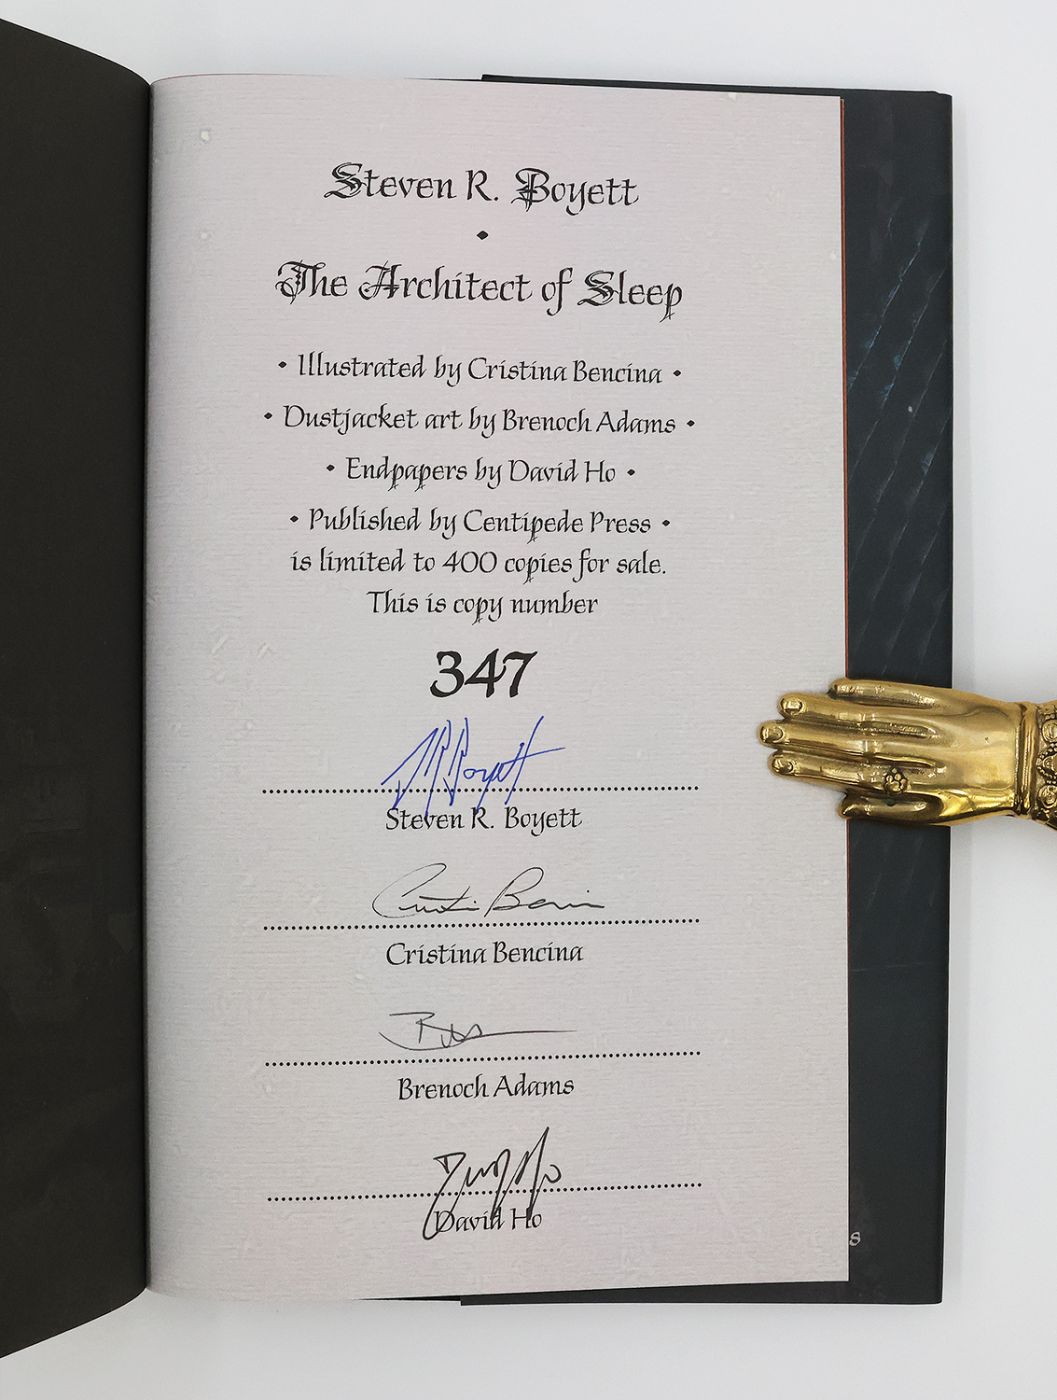 Steven R. Boyett
•
The Architect of Sleep
• Illustrated by Cristina Bencina •
• Dustjacket art by Brenoch Adams •
• Endpapers by David Ho •
• Published by Centipede Press •
is limited to 400 copies for sale.
This is copy number
347
S R Boyett
Steven R. Boyett
Cristina Bencina
Brenoch Adams
David Ho
David Ho
s